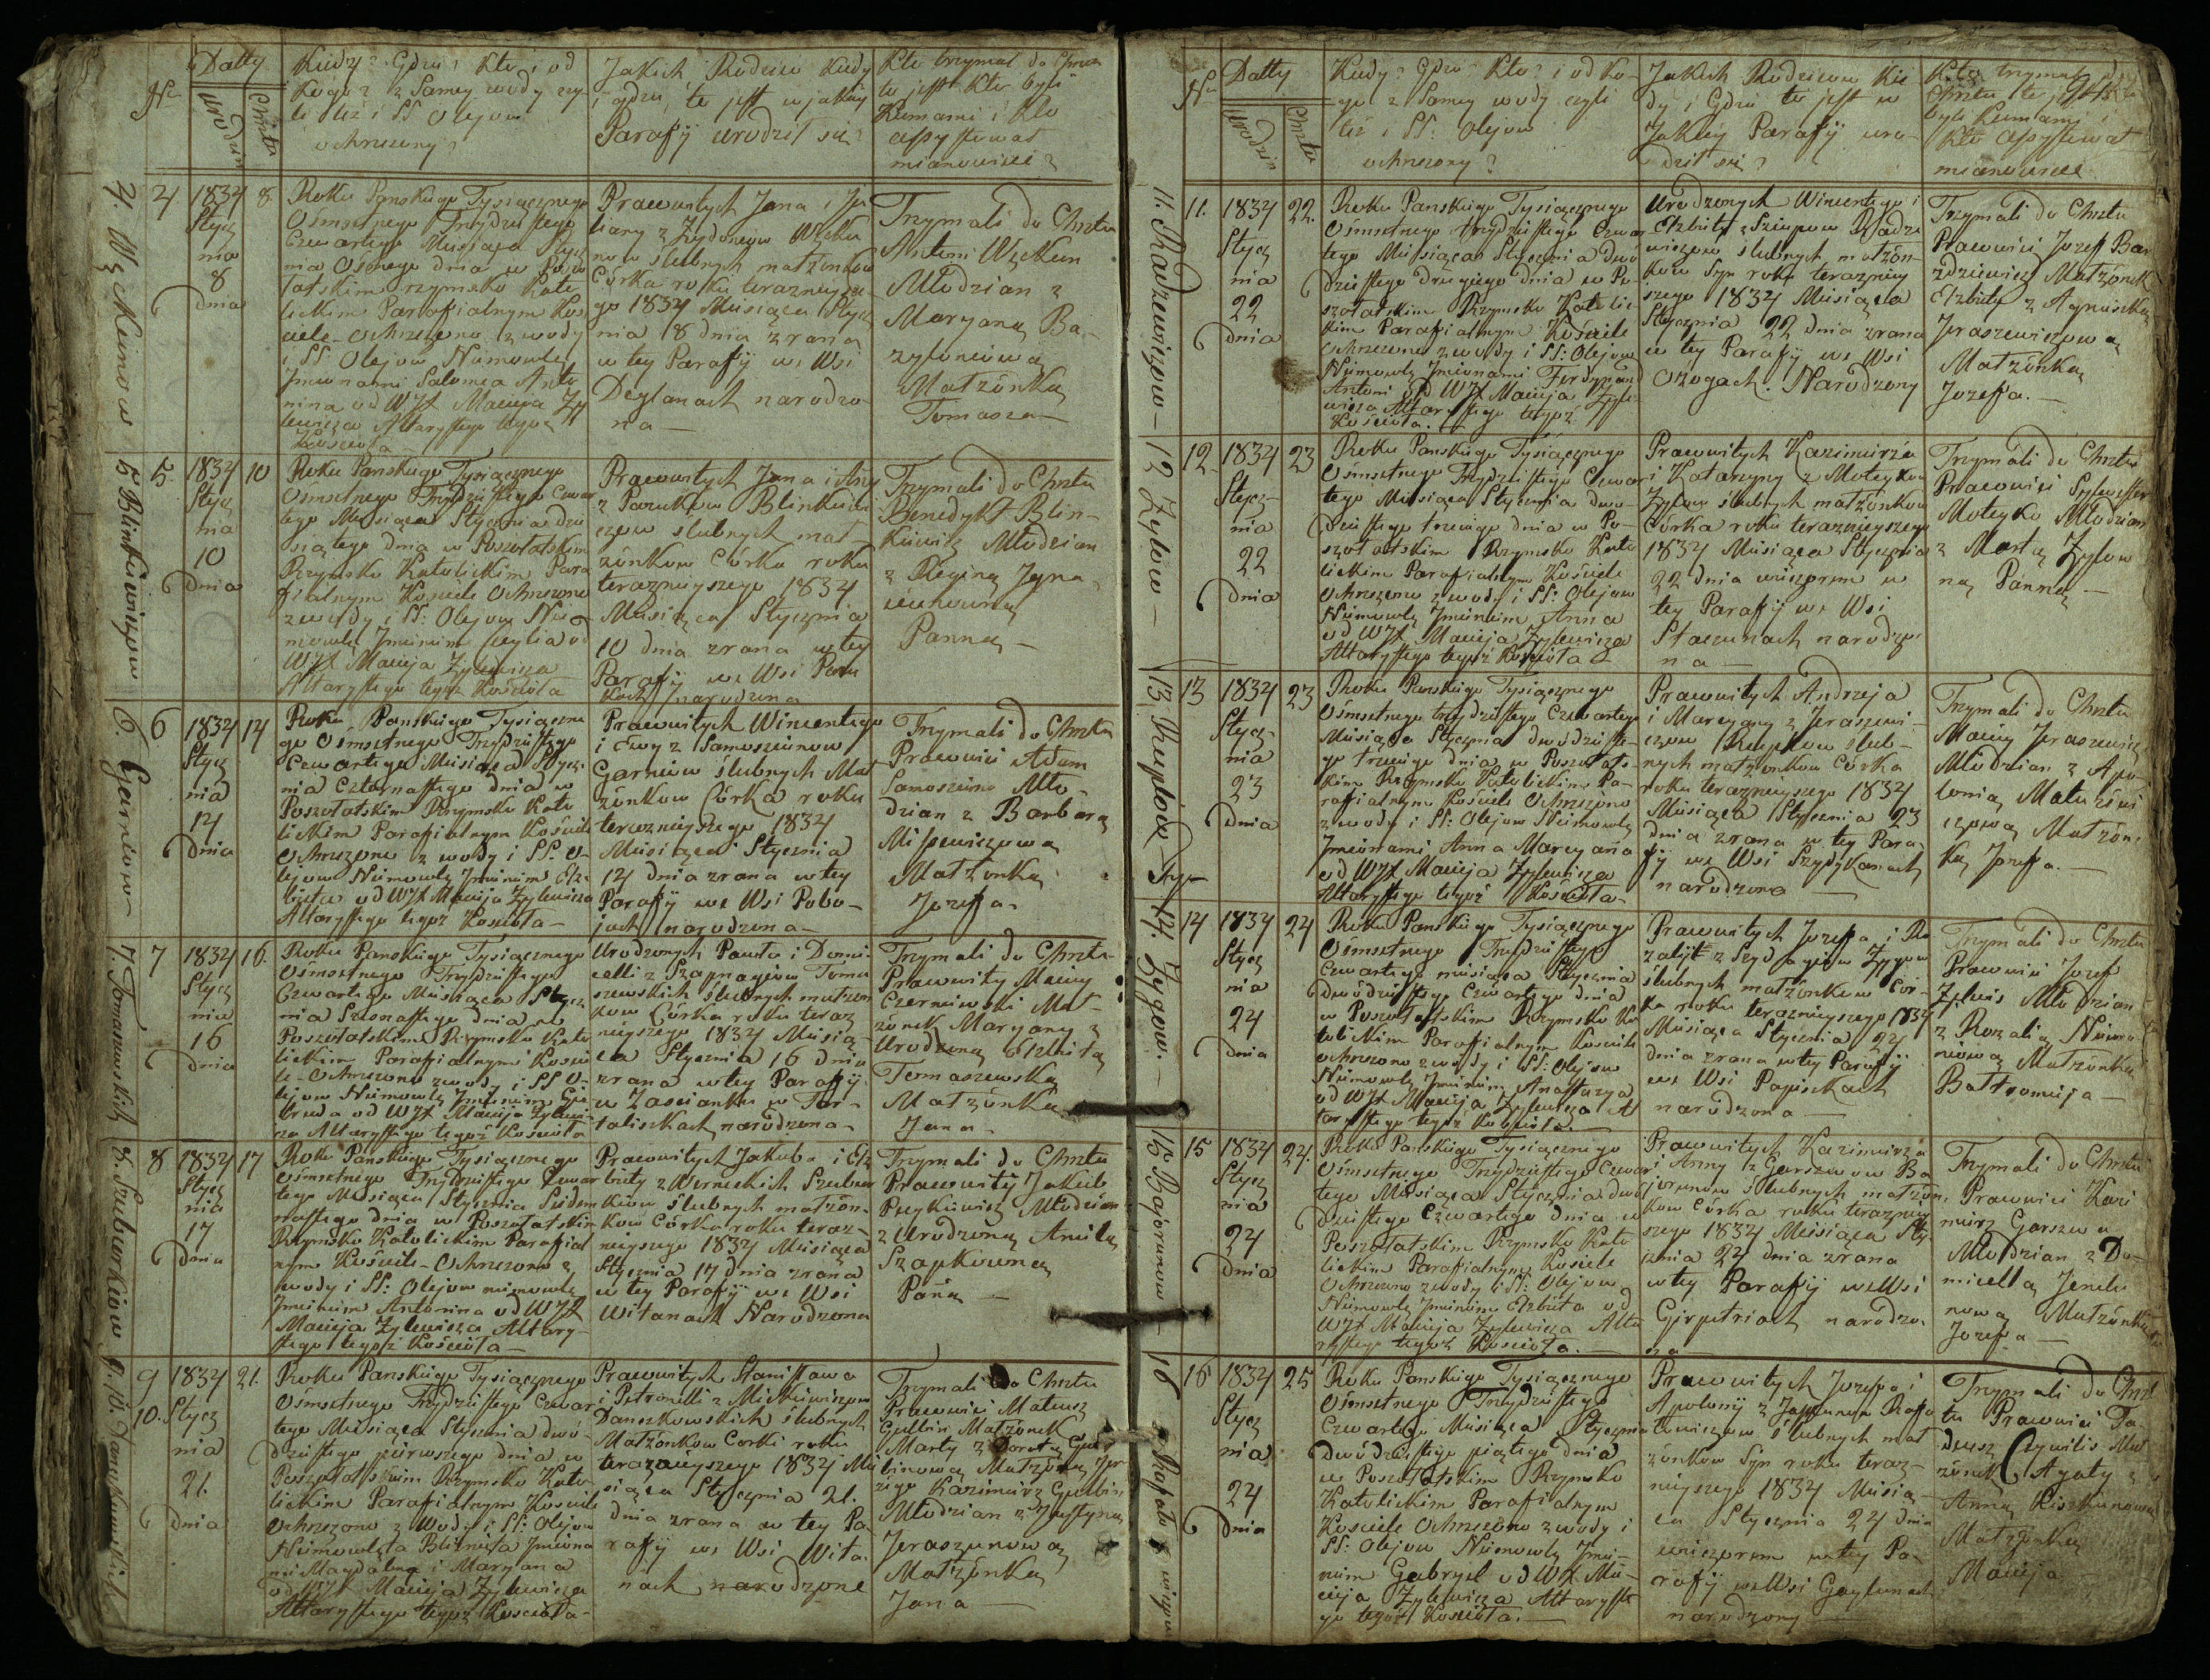 Nr
Datty
Urodzin
Chrztu
Kiedy? Gdzie? Kto, i od
Kogo? z Samey wody czy
li też i SS Olejow
ochrzczony?
Jakich Rodzicow kiedy
i gdzie, to jest w jakiey
Parafij urodził się?
Kto trzymał do Chrztu
to jest kto byli
Kumami i kto
assystował
mianowicie?
4. Węckunow
4
1834
Stycz
nia
8
dnia
8
Roku Panskiego Tysiącznego
Osmsetnego Trzydziestego
Czwartego Miesiąca Stycz
nia Osmego dnia w Poszo
łatskim rzymsko Kato
lickim Parafialnym Koś
ciele Ochrzczono z wody
i SS Olejow Niemowle
Jmionami Salomea Anto
nina od WJX Macieja Zy
lewicza Altarystego tegoż
Kościoła
Prawowitych Jana i Ju
liany z Zydoniow Węcku
now slubnych małżonkow
Córka roku teraznieysze
go 1834 Miesiąca Stycz
nia 8 dnia zrana
w tey Parafij we Wsi
Deglanach narodzo
na —
Trzymali do Chrztu
Antoni Węckun
Młodzian z
Maryanną Ba-
zyloniową
Małżonką
Tomasza —
5 Blinkiewiczow
5.
1834
Stycz
nia
10
dnia
10
Roku Panskiego Tysiącznego
Osmsetnego Trzydziestego Czwar
tego Miesiąca Stycznia dzie
siątego dnia w Poszołatskim
Rzymsko Katolickim Para
fialnym Kościele Ochrzczono
z wody i SS: Olejow Nie
mowle Jmieniem Cecylia od
WJX Macieja Zylewicza
Altarystego tegoż Kościoła
Prawowitych Jana i Anny
z Pazukow Blinkiewi
czow slubnych mał
żonkow Córka roku
teraznieyszego 1834
Miesiąca Stycznia
10 dnia zrana w tey
Parafij we Wsi
narodzona
Trzymali do Chrztu
Benedykt Blin-
kiewicz Młodzian
z Reginą
Panną —
6. Garniow
6
1834
Stycz
nia
14
dnia
14
Roku Panskiego Tysiączne
go Osmsetnego Trzydziestego
Czwartego Miesiąca Stycz
nia Czternastego dnia w
Poszołatskim Rzymsko Kato
lickim Parafialnym Kościele
Ochrzczono z wody i SS. O-
lejow Niemowle Jmieniem Elż
bieta od WJX Macieja Zylewicza
Altarystego tegoż Kościoła —
Prawowitych Wincentego
i Ewy z Samoszunow
Garniow slubnych Mał
żonkow Córka roku
teraznieyszego 1834
Miesiąca Stycznia
14 dnia zrana w tey
Parafij we Wsi Pobo-
jach narodzona —
Trzymali do Chrztu
Prawowici Adam
Samoszuno Mło-
dzian z Barbarą
Misiewiczową
Małżonką
Jozefa.
7. Tomaszewskich
7
1834
Stycz
nia
16
dnia
16.
Roku Panskiego Tysiącznego
Osmsetnego Trzydziestego
Czwartego Miesiąca Stycz
nia Szesnastego dnia w
Poszołatskim Rzymsko Kato
lickim Parafialnym Koście
le Ochrzczono z wody i SS O-
lejow Niemowle Jmieniem
od WJX Macieja Zylewi
cza Altarystego tegoż Kościoła
Urodzonych Pawła i Domi
celli z Szapragiow Toma
szewskich slubnych małżon
kow Córka roku teraz
nieyszego 1834 Miesią
ca Stycznia 16 dnia
zrana w tey Parafij
w Zascianku w Tar-
taliszkach narodzona.
Trzymali do Chrztu
Prawowity Maciey
Czerniewski Mał-
żonek Maryany z
Urodzoną Elżbietą
Tomaszewską
Małżonką
Jana.
8. Szuburkiow
8
1834
Stycz
nia
17
dnia
17
Roku Panskiego Tysiącznego
Osmsetnego Trzydziestego Czwar
tego Miesiąca Stycznia Siedem
nastego dnia w Poszołatskim
Rzymsko Katolickim Parafial
nym Kościele Ochrzczono z
wody i SS: Olejow niemowle
Jmieniem Antonina od WJX
Macieja Zylewicza Altary-
stego tegoż Kościoła —
Prawowitych Jakuba i Elż
biety z Wernickich Szubur
kiow slubnych małżon-
kow Córka roku teraz-
nieyszego 1834 Miesiąca
Stycznia 17 dnia zrana
w tey Parafij we Wsi
Witanach Narodzona
Trzymali do Chrztu
Prawowity Jakub
Młodzian
z Urodzoną Anielą
Szapkowną
Panną —
9. 10. Daneckowskich
9
10.
1834
Stycz
nia
21.
dnia
21.
Roku Panskiego Tysiącznego
Osmsetnego Trzydziestego Czwar
tego Miesiąca Stycznia dwó-
dziestego pierwszego dnia w
Poszołatskim Rzymsko Kato-
lickim Parafialnym Kościele
Ochrzczono z Wody i SS: Olejow
Niemowlęta Bliznięta Jmiona
mi Magdalena i Maryana
od WJX Macieja Zylewicza
Altarystego tegoż Kościoła-
Prawowitych Stanisława
i Petronelli z Mickiewiczow
Daneckowskich slubnych
Małżonkow Corki roku
teraznieyszego 1834 Mie
siąca Stycznia 21.
dnia zrana w tey Pa
rafij we Wsi Wita-
nach narodzone
Trzymali do Chrztu
Prawowici Mateusz
Gulbin Małżonek
Marty z Dorotą Gul
binową Małżonką Jer
zego Kazimierz Gulbin
Młodzian z Justyną
Jeraszunową
Małżonką
Jana —
Nr
Datty
Urodzin
Chrztu
Kiedy? Gdzie? Kto? i od ko-
go z Samey wody czyli
też i SS: Olejow
ochrzczony?
Jakich Rodzicow kie
dy i Gdzie to jest w
Jakiey Parafij uro
dził się?
Kto trzymał do
Chrztu to jest kto
byli Kumami i
kto assystował
mianowicie
11. Radzewiczow —
11.
1834
Stycz
nia
22
dnia
22.
Roku Panskiego Tysiącznego
Osmsetnego trzydziestego Czwar
tego Miesiąca Stycznia dwó
dziestego drugiego dnia w Po-
szołatskim Rzymsko Katolic
kim Parafialnym Kościele
Ochrzczono z wody i SS: Olejow
Niemowle Jmionami Ferdynand
Antoni od WJX Macieja Zyle-
wicza Altarystego tegoż
Kościoła. —
Urodzonych Wincentego i
Elżbiety z Radze
wiczow slubnych małżon-
kow Syn roku terazniey
szego 1834 Miesiąca
Stycznia 22 dnia zrana
w tey Parafij we Wsi
Ozogach. Narodzony
Trzymali do Chrztu
Prawowici Jozef Bar
zdziewicz Małżonek
Elżbiety z Agnieszką
Jeraszewiczową
Małżonką
Jozefa. —
12 Zylow —
12.
1834
Stycz-
nia
22
dnia
23
Roku Panskiego Tysiącznego
Osmsetnego Trzydziestego Czwar
tego Miesiąca Stycznia dwu-
dziestego trzeciego dnia w Po-
szołatskim Rzymsko Kato
lickim Parafialnym Kościele
Ochrzczono z wody i SS: Olejow
Niemowle Jmieniem Anna
od WJX Macieja Zylewicza
Altarystego tegoż Kościoła —
Prawowitych Kazimierza
i Katarzyny z Moteykow
Zylow slubnych małżonkow
Córka roku teraznieyszego
1834 Miesiąca Stycznia
22 dnia wieczorem w
tey Parafij we Wsi
Stacunach narodzo
na —
Trzymali do Chrztu
Prawowici Sylwester
Moteyko Młodzian
z Martą Zylow
ną Panną —
13 Rupłow
13
1834
Stycz-
nia
23
dnia
23
Roku Panskiego Tysiącznego
Osmsetnego trzydziestego Czwartego
Miesiąca Stycznia dwódzieste-
go trzeciego dnia w Poszołats-
kim Rzymsko Katolickim Pa-
rafialnym Kościele Ochrzczono
z wody i SS: Olejow Niemowle
Jmionami Anna Maryana
od WJX Macieja Zylewicza
Altarystego tegoż Kościoła —
Prawowitych Andrzeja
i Maryany z Jeraszewi-
czow slub-
nych małżonkow Córka
roku teraznieyszego 1834
Miesiąca Stycznia 23
dnia zrana w tey Para-
fij we Wsi Szydykanach
narodzona —
Trzymali do Chrztu
Maciey Jeraszewicz
Młodzian z Apo-
lonią
Małżon-
ką Jozefa. —
14. Zygow. —
14
1834
Stycz
nia
24
dnia
24
Roku Panskiego Tysiącznego
Osmsetnego Trzydziestego
Czwartego miesiąca Stycznia
dwódziestego Czwartego dnia
w Poszołatskim Rzymsko Ka
tolickim Parafialnym Kościele
ochrzczono z wody i SS: Olejow
Niemowle Jmieniem Anastazya
od WJX Macieja Zylewicza Al
tarystego tegoż Kościoła. —
Prawowitych Jozefa i Ro
zalij z Zygow
slubnych małżonkow Cór-
ka roku teraznieyszego 1834
Miesiąca Stycznia 24
dnia zrana w tey Parafij
we Wsi Papiszkach
narodzona —
Trzymali do Chrztu
Prawowici Jozef
Zylewis Młodzian
z Rozalią
Małżonką
Bałtromieja —
15 Bajorunow —
15
1834
Stycz
nia
24
dnia
24.
Roku Panskiego Tysiącznego
Osmsetnego Trzydziestego Czwar
tego Miesiąca Stycznia dwó
dziestego Czwartego dnia w
Poszołatskim Rzymsko Kato
lickim Parafialnym Kościele
Ochrzczono z wody i SS: Olejow
Niemowle Jmieniem Elżbieta od
WJX Macieja Zylewicza Alta
rystego tegoż Kościoła. —
Prawowitych Kazimierza
i Anny z Garszwow Ba
jorunow slubnych małżon
kow Córka roku terazniey
szego 1834 Miesiąca Sty-
cznia 24 dnia zrana
w tey Parafij we Wsi
narodzo-
na —
Trzymali do Chrztu
Prawowici Kazi
mierz Garszwa
Młodzian z Do-
micellą
Małżonką
Jozefa —
16 Rafałowiczow
16
1834
Stycz
nia
24
dnia
25
Roku Panskiego Tysiącznego
Osmsetnego Trzydziestego
Czwartego Miesiąca Stycznia
dwódziestego piątego dnia
w Poszołatskim Rzymsko
Katolickim Parafialnym
Kościele Ochrzczono z wody i
SS: Olejow Niemowle Jmie-
niem Gabryel od WJX Ma-
cieja Zylewicza Altaryste
go tegoż Kościoła. —
Prawowitych Jozefa i
Apolonij z Rafa
łowiczow slubnych mał
żonkow Syn roku teraz-
nieyszego 1834 Miesią-
ca Stycznia 24 dnia
wieczorem w tey Pa-
rafij we Wsi Gaylunach
narodzony —
Trzymali do Chrz
tu Prawowici Ta-
deusz Cywilis Mał
żonek Agaty z
Anną
Małżonką
Macieja —